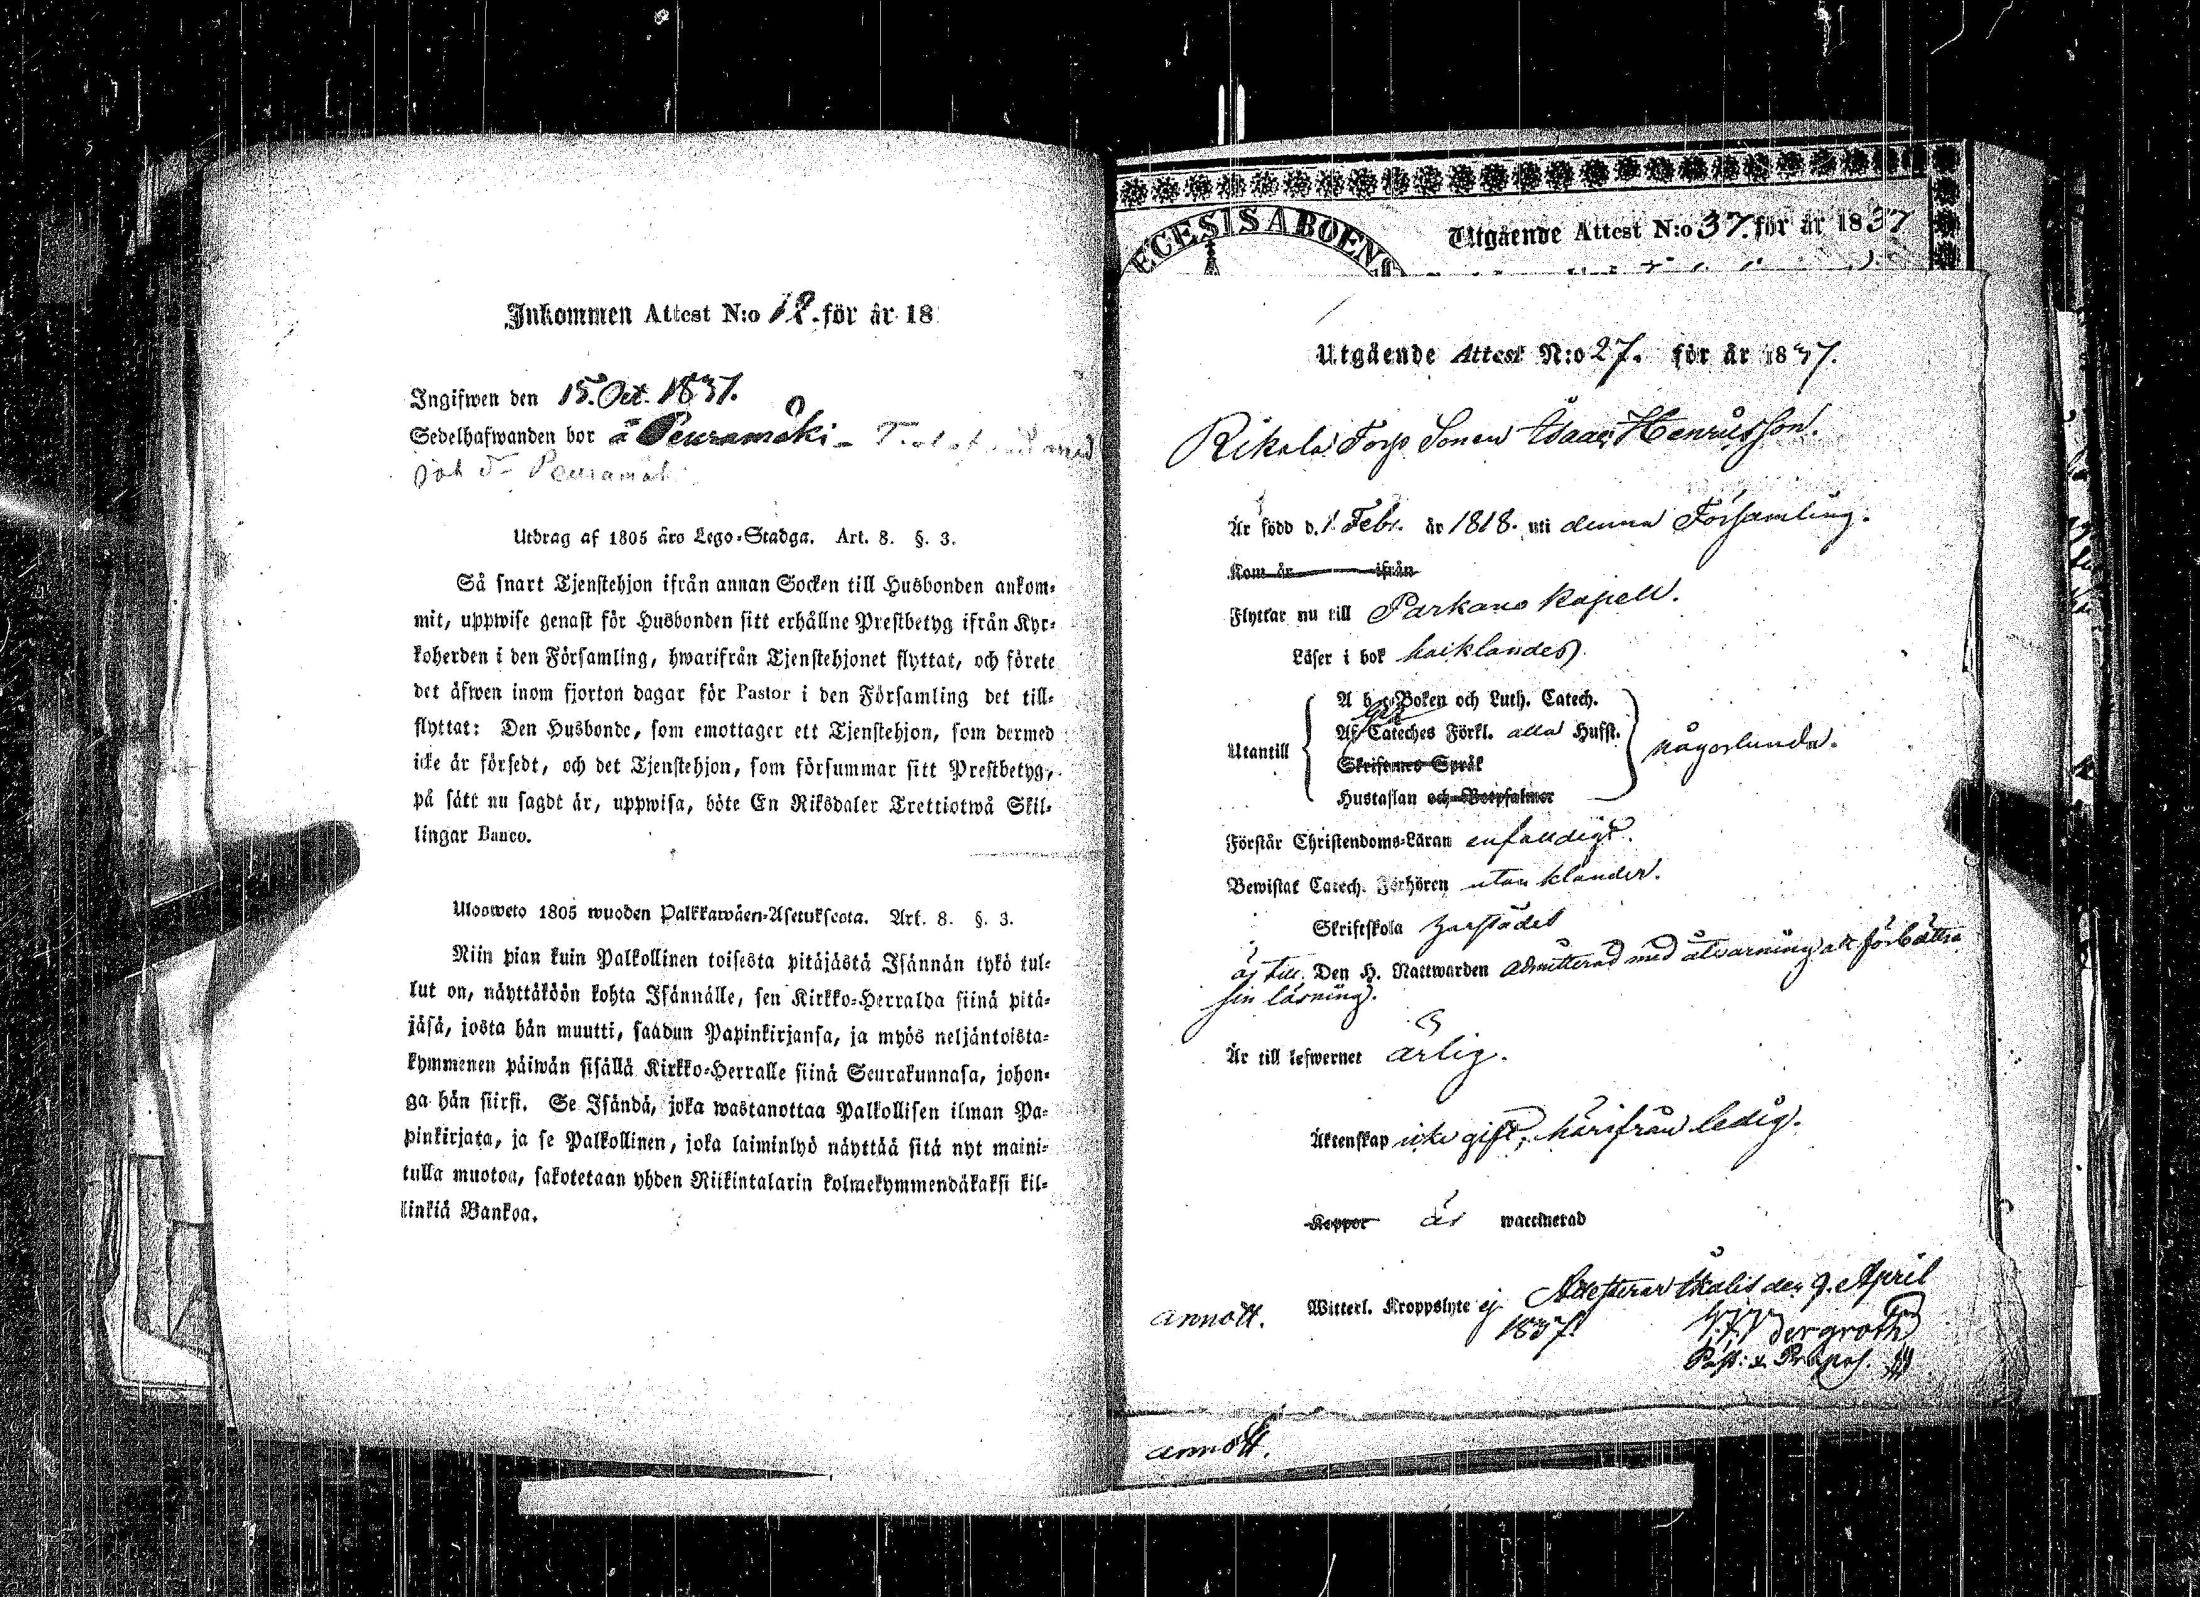 Inkommen Attest N:o 12. för år 18
Ingifwen den 15. Oct. 1837.
Sedelhafwanden bor å Peuramäki
Utdrag af 1805 års Lego-Stadga. Art. 8. §. 3.
Så snart Tjenstehjon ifrån annan Socken till Husbonden ankom-
mit, uppwise genast för Husbonden sitt erhållne Prestbetyg ifrån Kyr-
koherden i den Församling, hwarifrån Tjenstehjonet flyttat, och förete
det äfwen inom fjorton dagar för Pastor i den Församling det till-
flyttat: Den Husbonde, som emottager ett Tjenstehjon, som dermed
icke är försedt, och det Tjenstehjon, som försummar sitt Prestbetyg,
på sätt nu sagdt är, uppwisa, böte En Riksdaler Trettiotwå Skil-
lingar Banco.
Ulosweto 1805 wuoden Palkkawäen-Asetuksesta. Art. 8. §. 3.
Niin pian kuin Palkollinen toisesta pitäjästä Isännän tykö tul-
lut on, näyttäköön kohta Isännälle, sen Kirkko-Herralda siinä pitä-
jäsä, josta hän muutti, saadun Papinkirjansa, ja myös neljäntoista-
kymmenen päiwän sisällä Kirkko-Herralle siinä Seurakunnasa, johon-
ga hän siirsi. Se Isändä, joka wastanottaa Palkollisen ilman Pa-
pinkirjata, ja se Palkollinen, joka laiminlyö näyttää sitä nyt maini-
tulla muotoa, sakotetaan yhden Riikintalarin kolmekymmendäkaksi kil-
linkiä Bankoa.
ECESIS ABOENS
Utgående Attest N:o 37. för år 1837
Utgående Attest N:o 27. för år 1837.
Rikala Torp Sonen Isaac Henricsson.
Är född d. 1. Febr. år 1818. uti denna Församling.
Kom år ifrån
Flyttar nu till Parkano Kapell.
Läser i bok
A b c Boken och Luth. Catech.
Af Cateches Förkl. alla Hufst.
Utantill någorlunda.
Skriftenes Språk
Hustaflan och Botpsalmer
Förstår Christendoms-Läran enfaldigt.
Bewistat Catech. Förhören utan klander.
Skriftskola
äf till Den H. Nattwarden admitterad med åtvarning att förbättra
sin läsning.
Är till lefwernet ärlig.
Äktenskap icke gift, härifrån ledig.
Koppor är waccinerad
Witterl. Kroppslyte ej. Attesterar Ikalis den 9. April
annott. 1837.
Past: & Præpos.
annott.